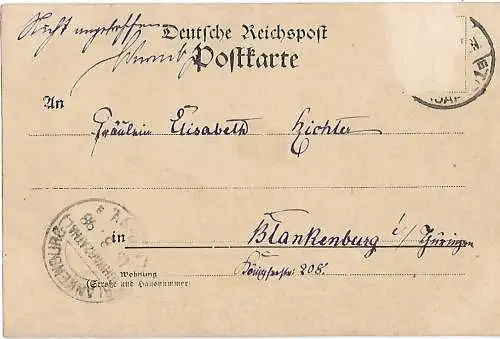 Nicht angetroffen
Deutsche Reichspost
Postkarte
An
Fräulein Elisabeth Richter
in Blankenburg i/Thüringen
Wohnung
(Straße und Hausnummer)
208.
BLANKENBURG
98